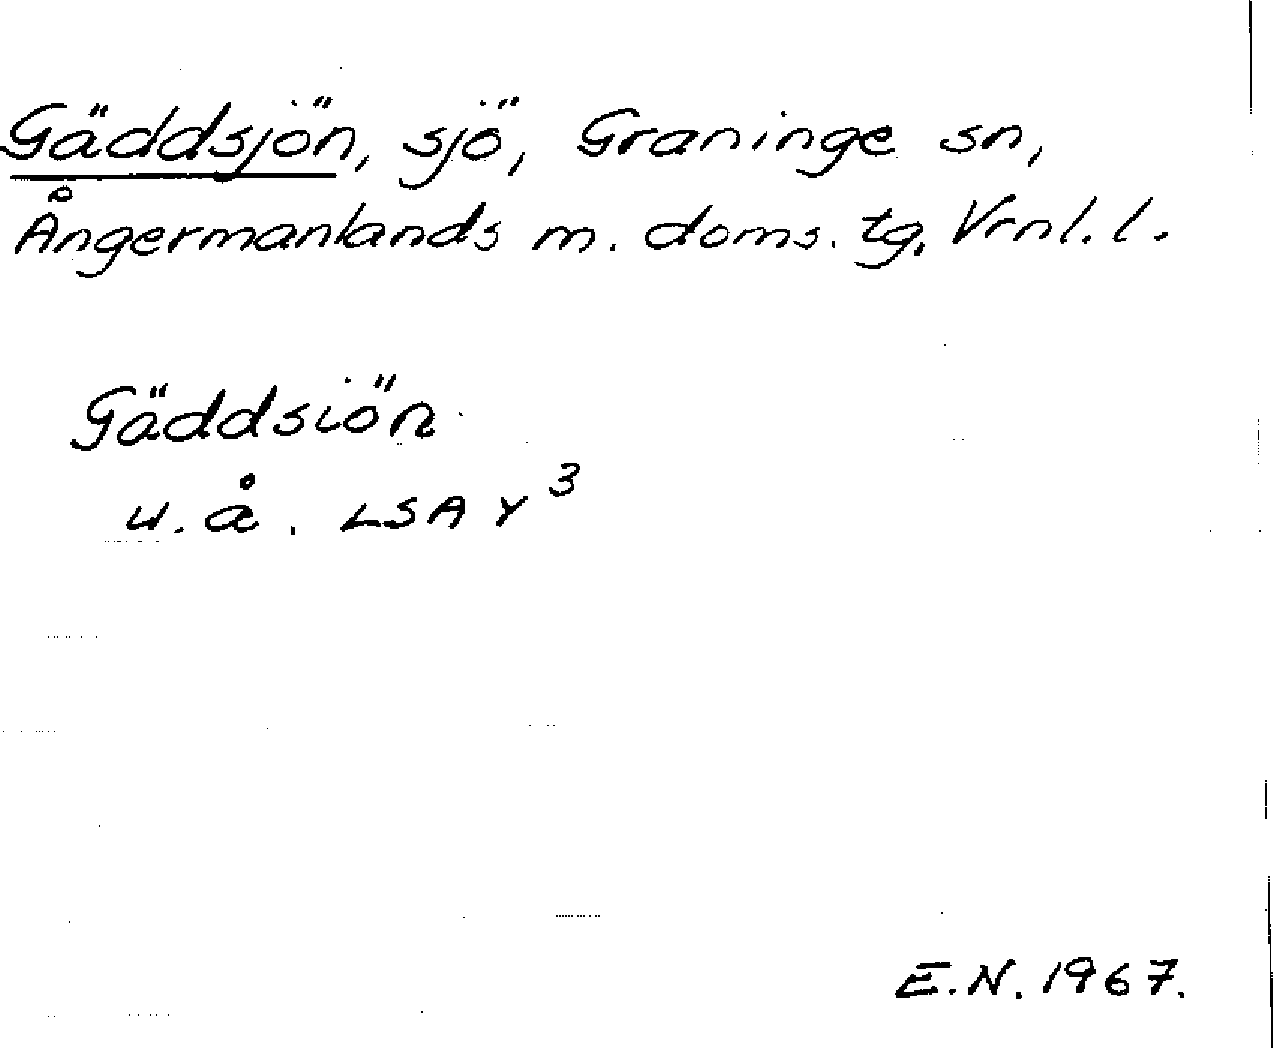 Gäddsjön, sjö, Graninge sn,
Ångermanlands m. doms. tg, Vrnl. l.
Gäddsiön
u. å. LSA Y 3
E.N. 1967.